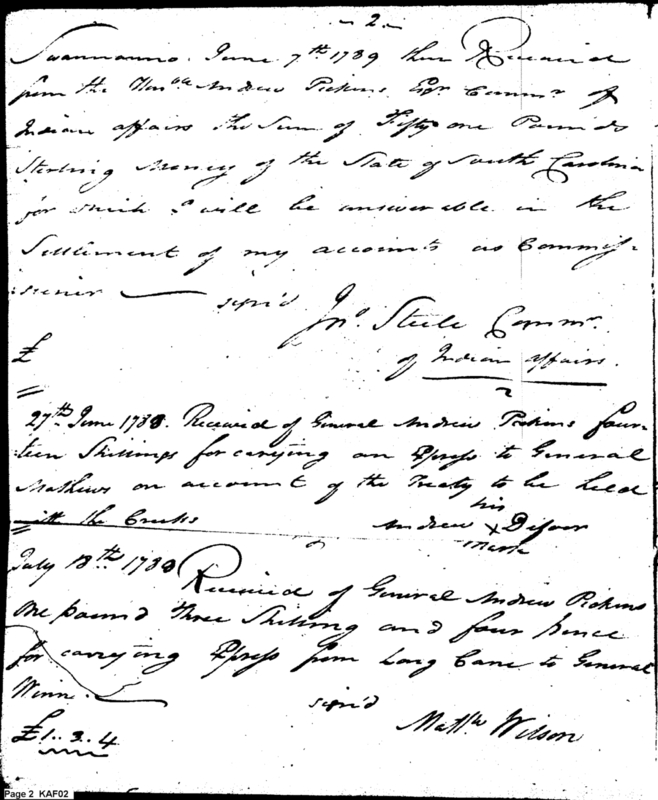 - 2 -
Swannanno. June 7th 1789 then Received
from the Honble Andrew Pickins Esqr Commr of
Indian affairs the Sum of Fifty one Pounds
Sterling Money of the State of South Carolina
for which I will be answerable in the
Settlement of my accounts as Commis-
sioner — sign'd
Jno. Steele Commr.
£ of Indian affairs.
27th June 1788. Received of General Andrew Pickins four-
teen Shillings for carying an Express to General
Mathews on account of the Treaty to be held
with the Creeks his
Andrew X Defoor
mark
July 18th 1788 Received of General Andrew Pickins
One pound three Shilling and four pence
for carrying Express from Long Cane to General
Winn. — sign'd
Matthw Wilson
£1..3.4
Page 2 KAF02